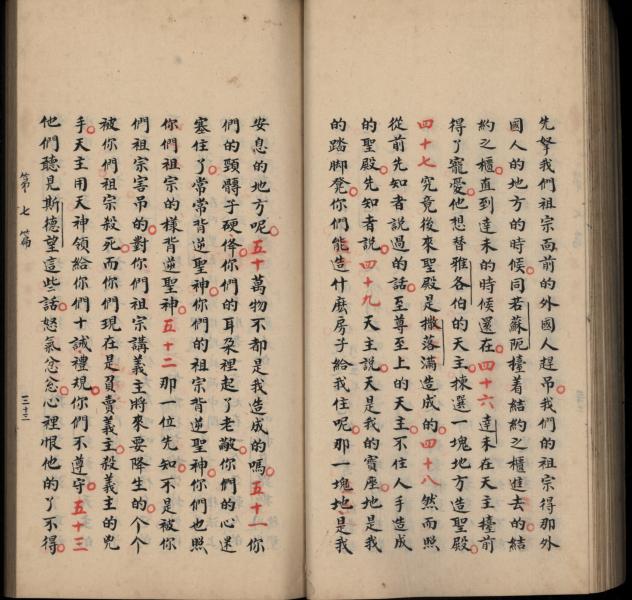 先孥我們祖宗面前的外國人趕吊我們的祖宗得那外
國人的地方的時候同若蘇阨檯着結約之櫃進去的結
約之櫃直到達未的時候還在四十六達未在天主檯前
得了寵憂他想替雅各伯的天主揀選一塊地方造聖殿
四十七究竟後來聖殿是撒落滿造成的四十八然而照
從前先知者說過的話至尊至上的天主不住人手造成
的聖殿先知者說四十九天主說天是我的寶座地是我
的踏脚凳你們能造什麽房子給我住呢那一塊地是我
安息的地方呢五十萬物不都是我造成的嗎五十一你
們的頸髒子硬係你們的耳朶裡起了老敲你們的心迷
塞住了常常背逆聖神你們的祖宗背逆聖神你們也照
你們祖宗的樣背逆聖神五十二那一位先知不是被你
們祖宗害吊的對你們祖宗講義主將來要降生的个个
被你們祖宗殺死而你們現在是負賣義主殺義主的兇
手天主用天神領給你們十誡禮規你們不遵守五十三
他們聽見斯德望這些話怒氣忿忿心裡恨他的了不得
第七篇
三十三